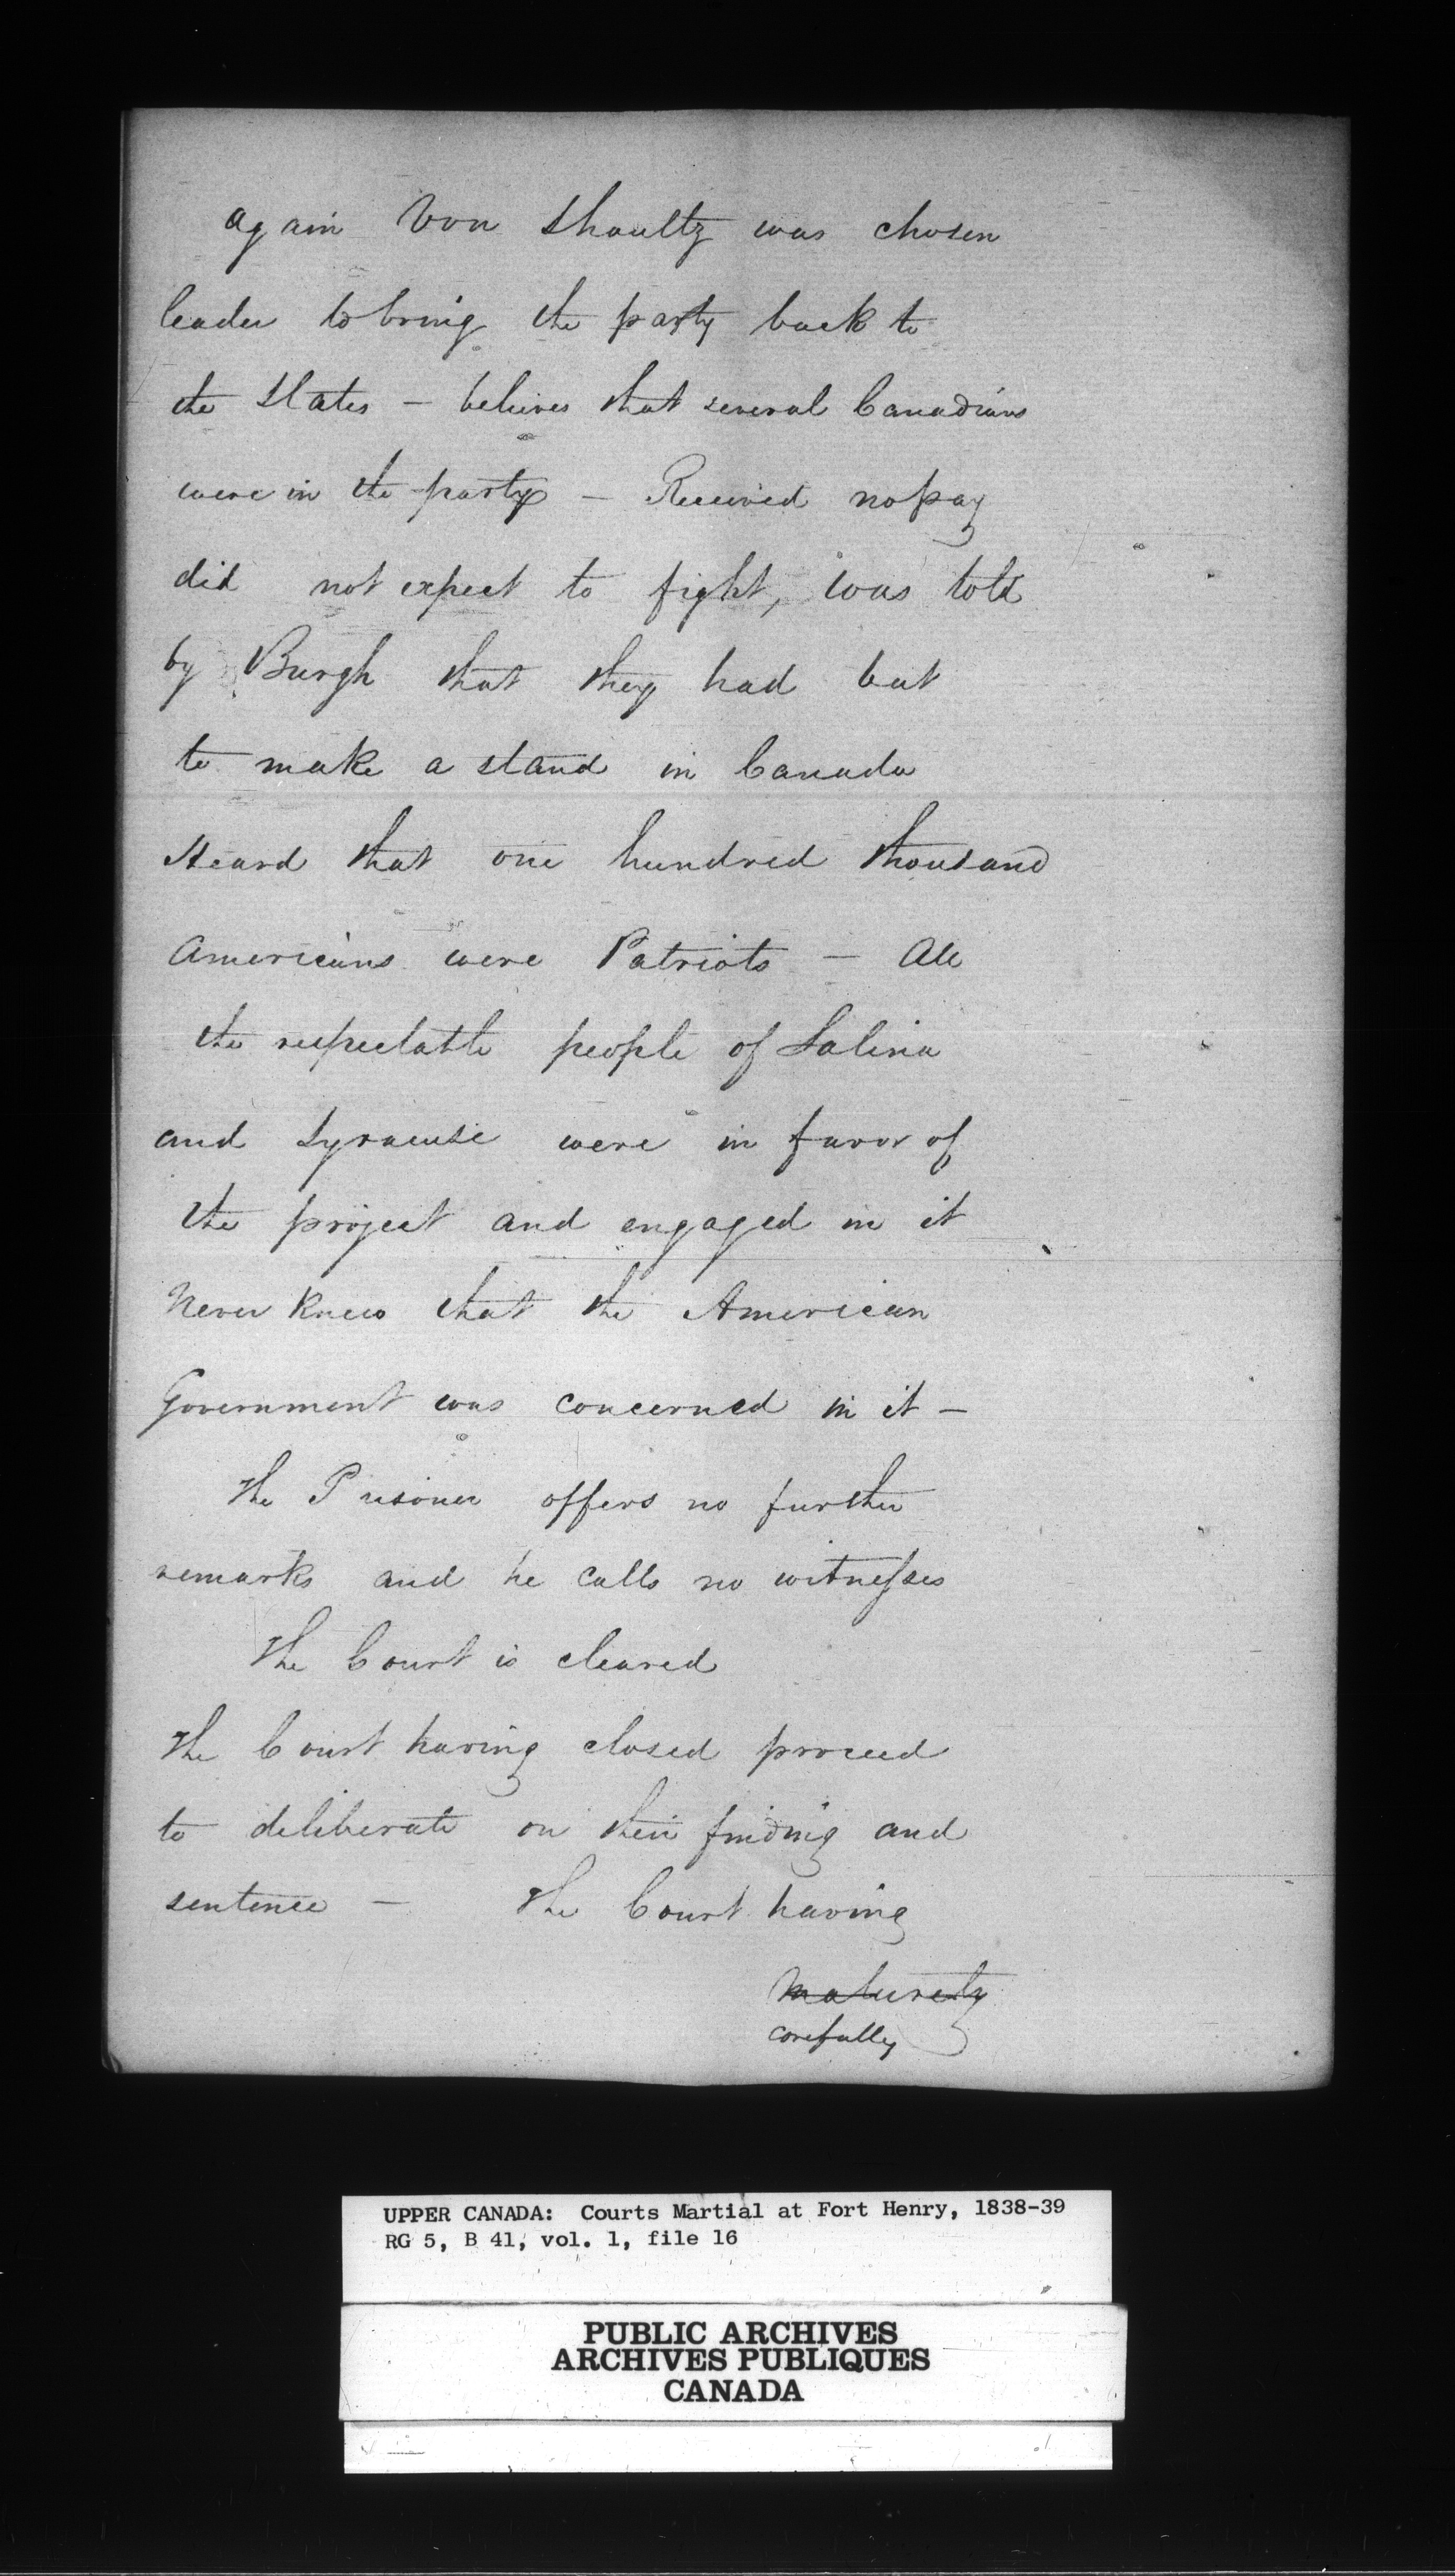 again Von Shoultz was chosen
leader to bring the party back to
the States – believes that several Canadians
were in the party – Received no pay
did not expect to fight, was told
by Burgh that they had but
to make a stand in Canada
Heard that one hundred thousand
Americans were Patriots – All
the respectable people of Salina
and Syracuse were in favor of
the project and engaged in it
Never knew that the American
Government was concerned in it –
The Prisoner offers no further
remarks and he calls no witnesses
The Court is cleared
The Court having closed proceed
to deliberate on their finding and
sentence – The Court having
maturely
carefully
UPPER CANADA: Courts Martial at Fort Henry, 1838-39
RG 5, B 41, vol. 1, file 16
PUBLIC ARCHIVES
ARCHIVES PUBLIQUES
CANADA